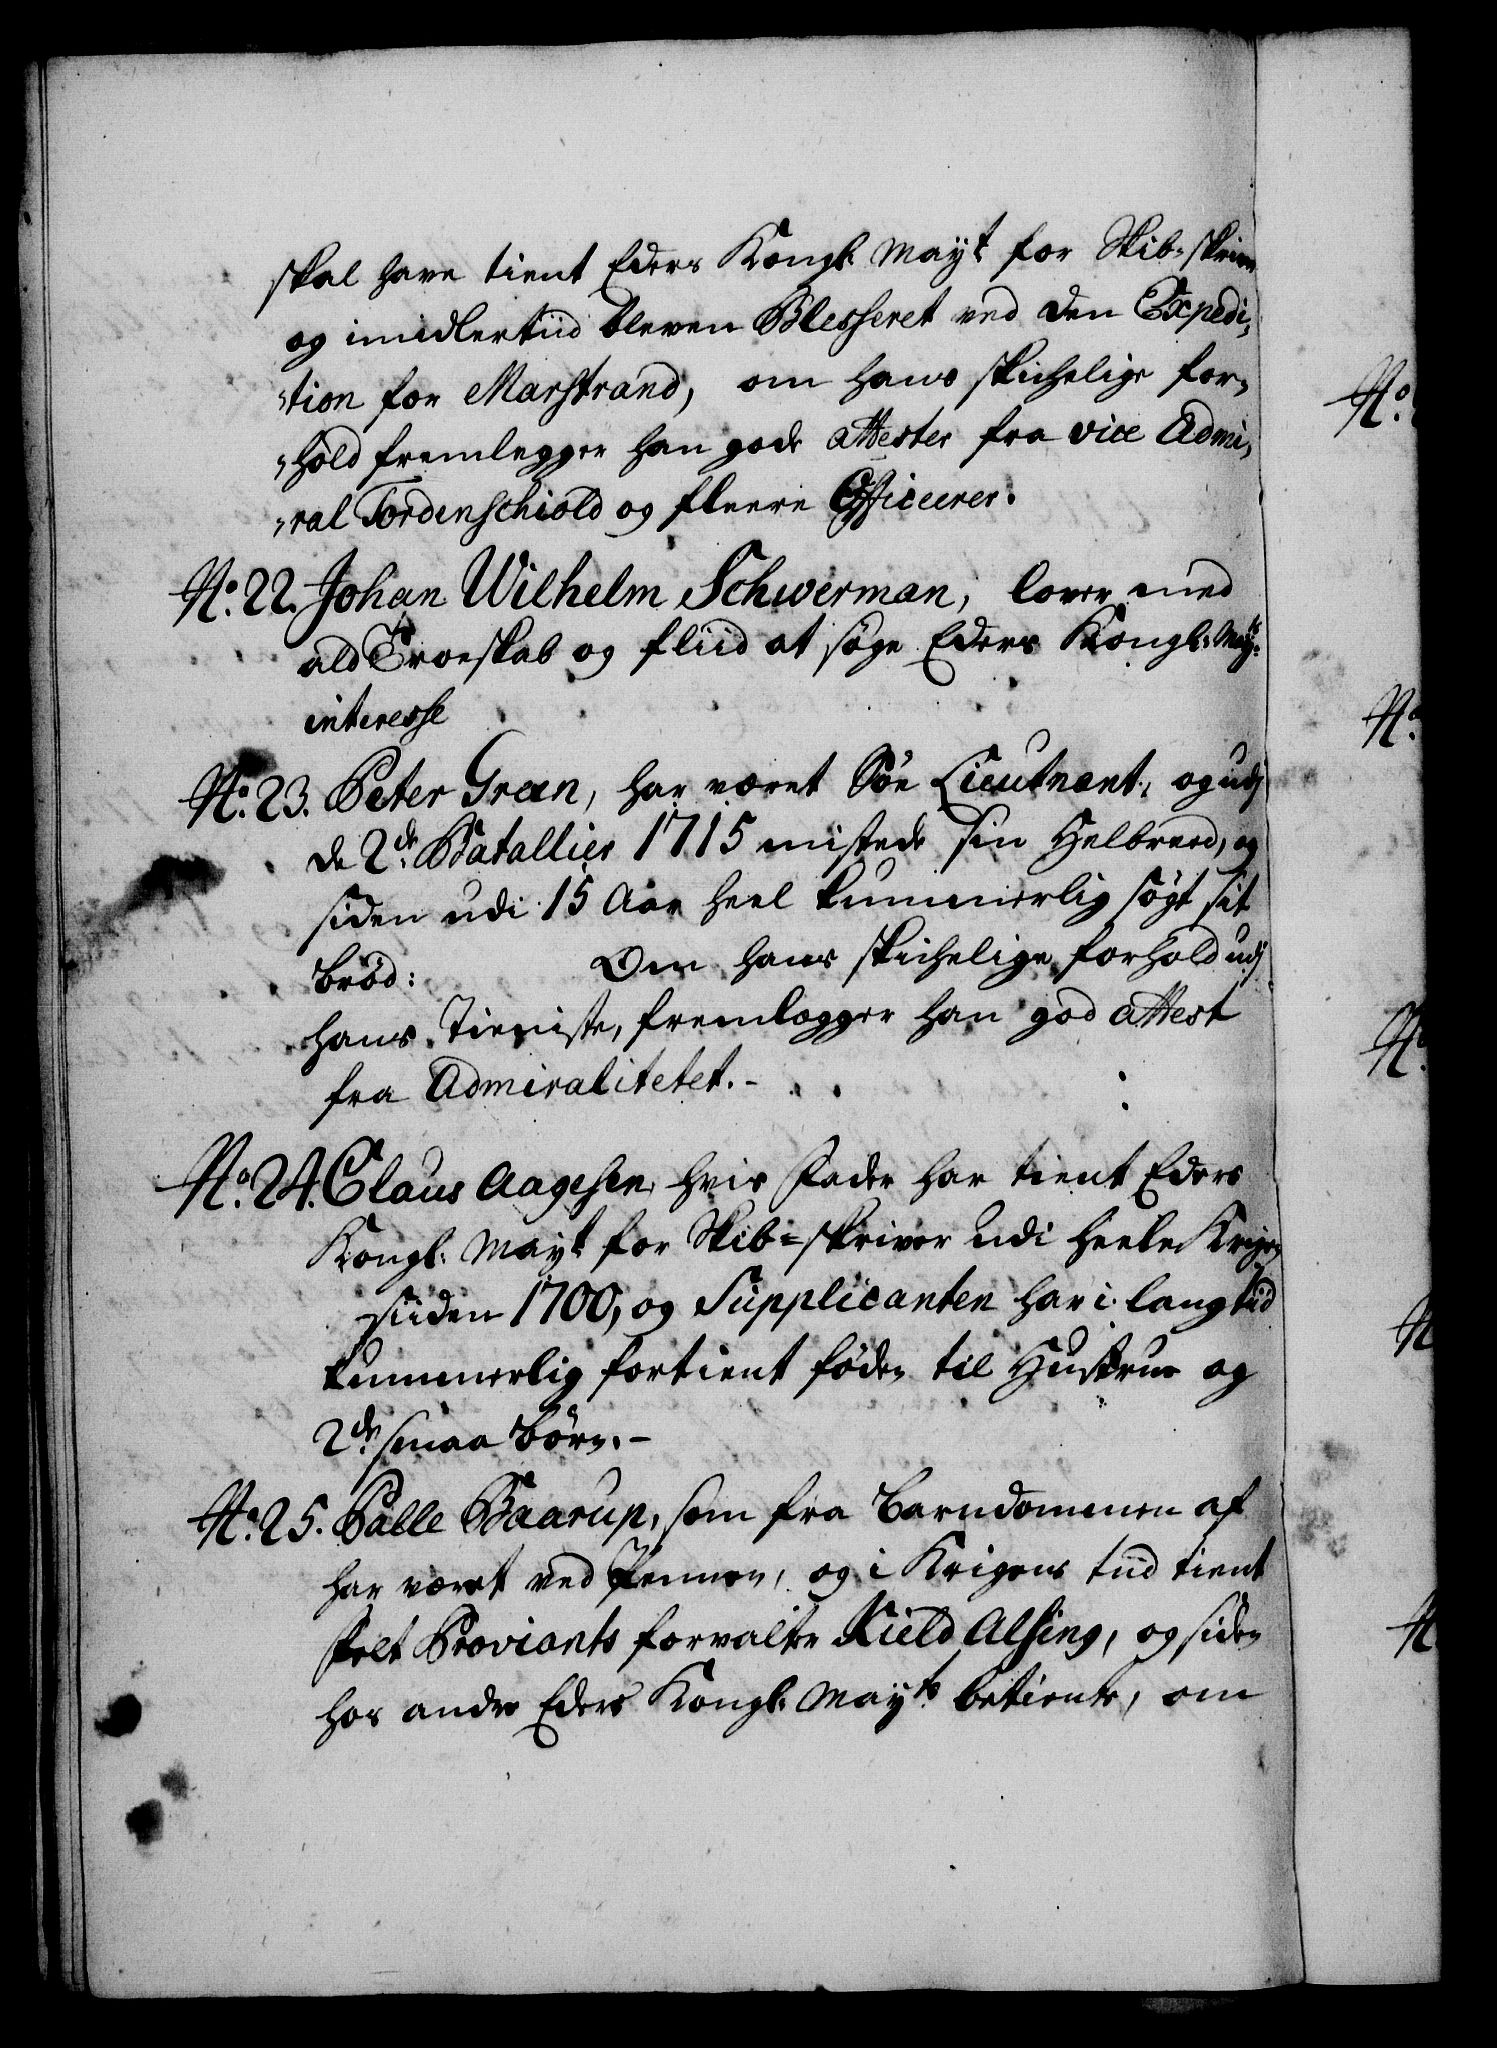 skal have tient Eders Kongl: Mayt for Skib-skriver
og imidlertiid bleven Blesseret ved den Expedi-
-tion for Marstrand, om hans skichelige for-
-hold fremlegger han gode attester fra vice Admi-
-ral Tordenschiold og fleere Officeerer.
No. 22. Johan Wilhelm Schwerman, lover med
ald Troeskab og fliid at søge Eders Kongl: Mayts
interesse
No. 23. Peter Green, har været Søe Lieutnant, og udj
de 2de Batallier 1715 mistede sin Helbreed, og
siden udi 15 Aar heel kummerlig søgt sit
brød: Om hans skichelige forhold udj
hans Tieniste, fremlegger han god attest
fra Admiralitetet.-
No. 24. Claus Aagesen, hvis Fader har tient Eders
Kongl: Mayt for Skib-skriver udi heele Krigen
siiden 1700, og Supplicanten har i lang tiid
kummerlig fortient føden til Hustrue og
2de smaa børn.-
No. 25. Palle Baarup, som fra Barndommen af
har været ved Pennen, og i Krigens tiid tient
Felt Proviants forvalter Kield Alsing, og siden
hos andre Eders Kongl: Mayts betiente, om
No.
No.
No.
N
N